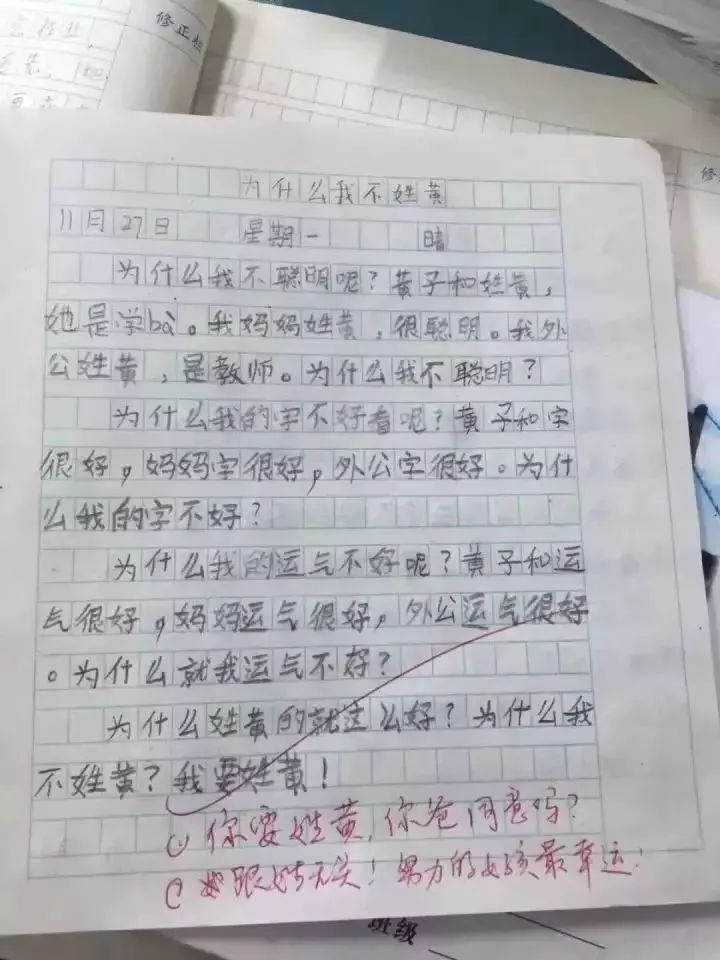 修正栏
为什么我不姓黄
11月27日 星期一 晴
为什么我不聪明呢？黄子和姓黄，
她是学bà。我妈妈姓黄，很聪明。我外
公姓黄，是教师。为什么我不聪明？
为什么我的字不好看呢？黄子和字
很好，妈妈字很好，外公字很好。为什
么我的字不好？
为什么我的运气不好呢？黄子和运
气很好，妈妈运气很好，外公运气很好
。为什么就我运气不好？
为什么姓黄的就这么好？为什么我
不姓黄？我要姓黄！
(1) 你要姓黄，你爸同意吗？
跟姓无关！努力的女孩最幸运！
班级